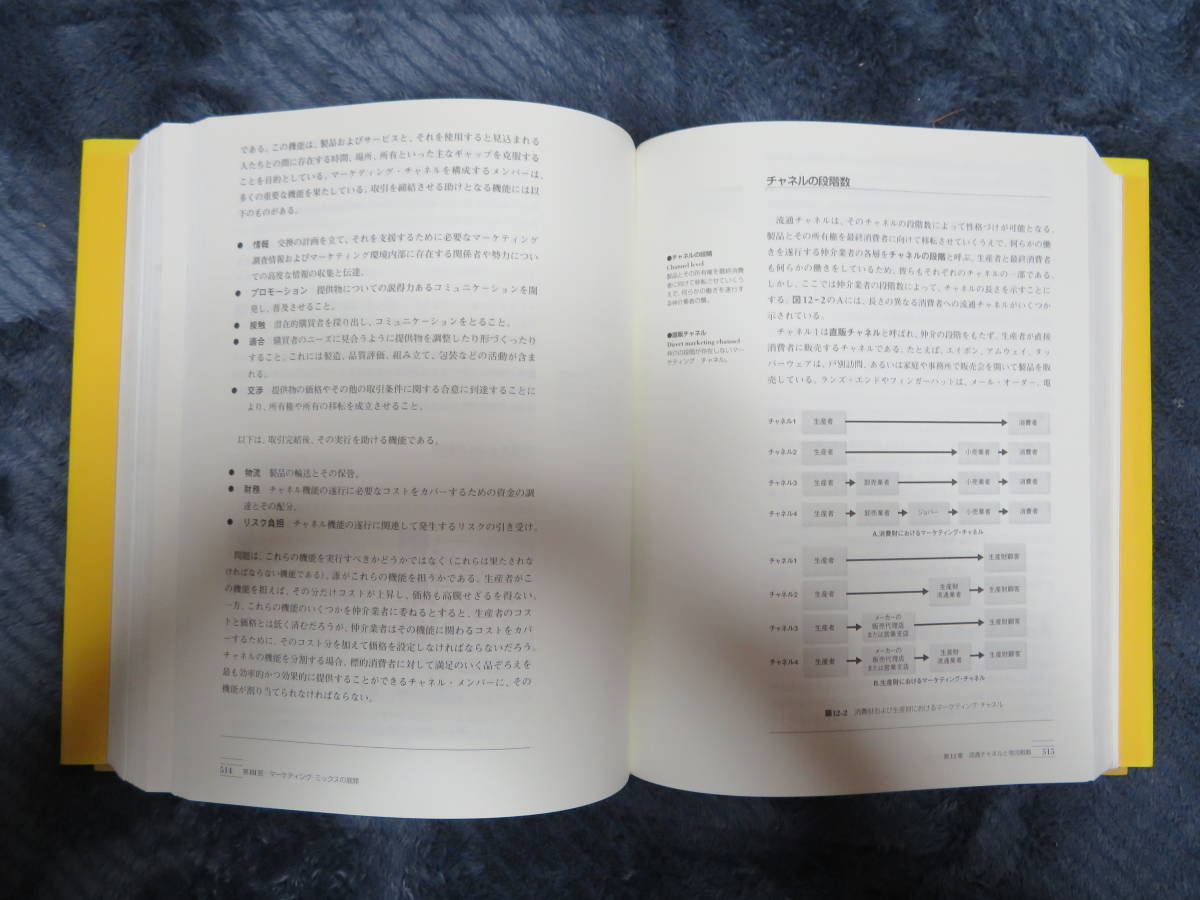 である。この機能は、製品およびサービスと、それを使用すると見込まれる
人たちとの間に存在する時間、場所、所有といった主なギャップを克服する
ことを目的としている。マーケティング・チャネルを構成するメンバーは、
多くの重要な機能を果たしている。取引を締結させる助けとなる機能には以
下のものがある。
● 情報 交換の計画を立て、それを支援するために必要なマーケティング
調査情報およびマーケティング環境内部に存在する関係者や勢力につい
ての高度な情報の収集と伝達。
● プロモーション 提供物についての説得力あるコミュニケーションを開
発し、普及させること。
● 接触 潜在的購買者を探り出し、コミュニケーションをとること。
● 適合 購買者のニーズに見合うように提供物を調整したり形づくったり
すること。これには製造、品質評価、組み立て、包装などの活動が含ま
れる。
● 交渉 提供物の価格やその他の取引条件に関する合意に到達することに
より、所有権や所有の移転を成立させること。
以下は、取引完結後、その実行を助ける機能である。
● 物流 製品の輸送とその保管。
● 財務 チャネル機能の遂行に必要なコストをカバーするための資金の調
達とその配分。
● リスク負担 チャネル機能の遂行に関連して発生するリスクの引き受け。
問題は、これらの機能を実行すべきかどうかではなく(これらは果たされな
ければならない機能である)、誰がこれらの機能を担うかである。生産者がこ
の機能を担えば、その分だけコストが上昇し、価格も高騰せざるを得ない。
一方、これらの機能のいくつかを仲介業者に委ねるとすると、生産者のコス
トと価格とは低く済むだろうが、仲介業者はその機能に関わるコストをカバ
ーするために、そのコスト分を加えて価格を設定しなければならないだろう。
チャネルの機能を分割する場合、標的消費者に対して満足のいく品ぞろえを
最も効率的かつ効果的に提供することができるチャネル・メンバーに、その
機能が割り当てられなければならない。
514 第III部 マーケティング・ミックスの展開
チャネルの段階数
流通チャネルは、そのチャネルの段階数によって性格づけが可能となる。
製品とその所有権を最終消費者に向けて移転させていくうえで、何らかの働
きを遂行する仲介業者の各層をチャネルの段階と呼ぶ。生産者と最終消費者
も何らかの働きをしているため、彼らもそれぞれのチャネルの一部である。
しかし、ここでは仲介業者の段階数によって、チャネルの長さを示すことに
する。図12-2のAには、長さの異なる消費者への流通チャネルがいくつか
示されている。
チャネル1は直販チャネルと呼ばれ、仲介の段階をもたず、生産者が直接
消費者に販売するチャネルである。たとえば、エイボン、アムウェイ、タッ
パーウェアは、戸別訪問、あるいは家庭や事務所で販売会を開いて製品を販
売している。ランズ・エンドやフィンガーハットは、メール・オーダー、電
●チャネルの段階
Channel level
製品とその所有権を最終消費
者に向けて移転させていくう
えで、何らかの働きを遂行す
る仲介業者の層。
●直販チャネル
Direct marketing channel
仲介の段階が存在しないマー
ケティング・チャネル。
チャネル1 生産者 消費者
チャネル2 生産者 小売業者 消費者
チャネル3 生産者 卸売業者 小売業者 消費者
チャネル4 生産者 卸売業者 ジョバー 小売業者 消費者
A.消費財におけるマーケティング・チャネル
チャネル1 生産者 生産財顧客
チャネル2 生産者 生産財
流通業者 生産財顧客
チャネル3 生産者 メーカーの
販売代理店
または営業支店 生産財顧客
チャネル4 生産者 メーカーの
販売代理店
または営業支店 生産財
流通業者 生産財顧客
B.生産財におけるマーケティング・チャネル
図12-2 消費財および生産財におけるマーケティング・チャネル
第12章 流通チャネルと物流戦略 515